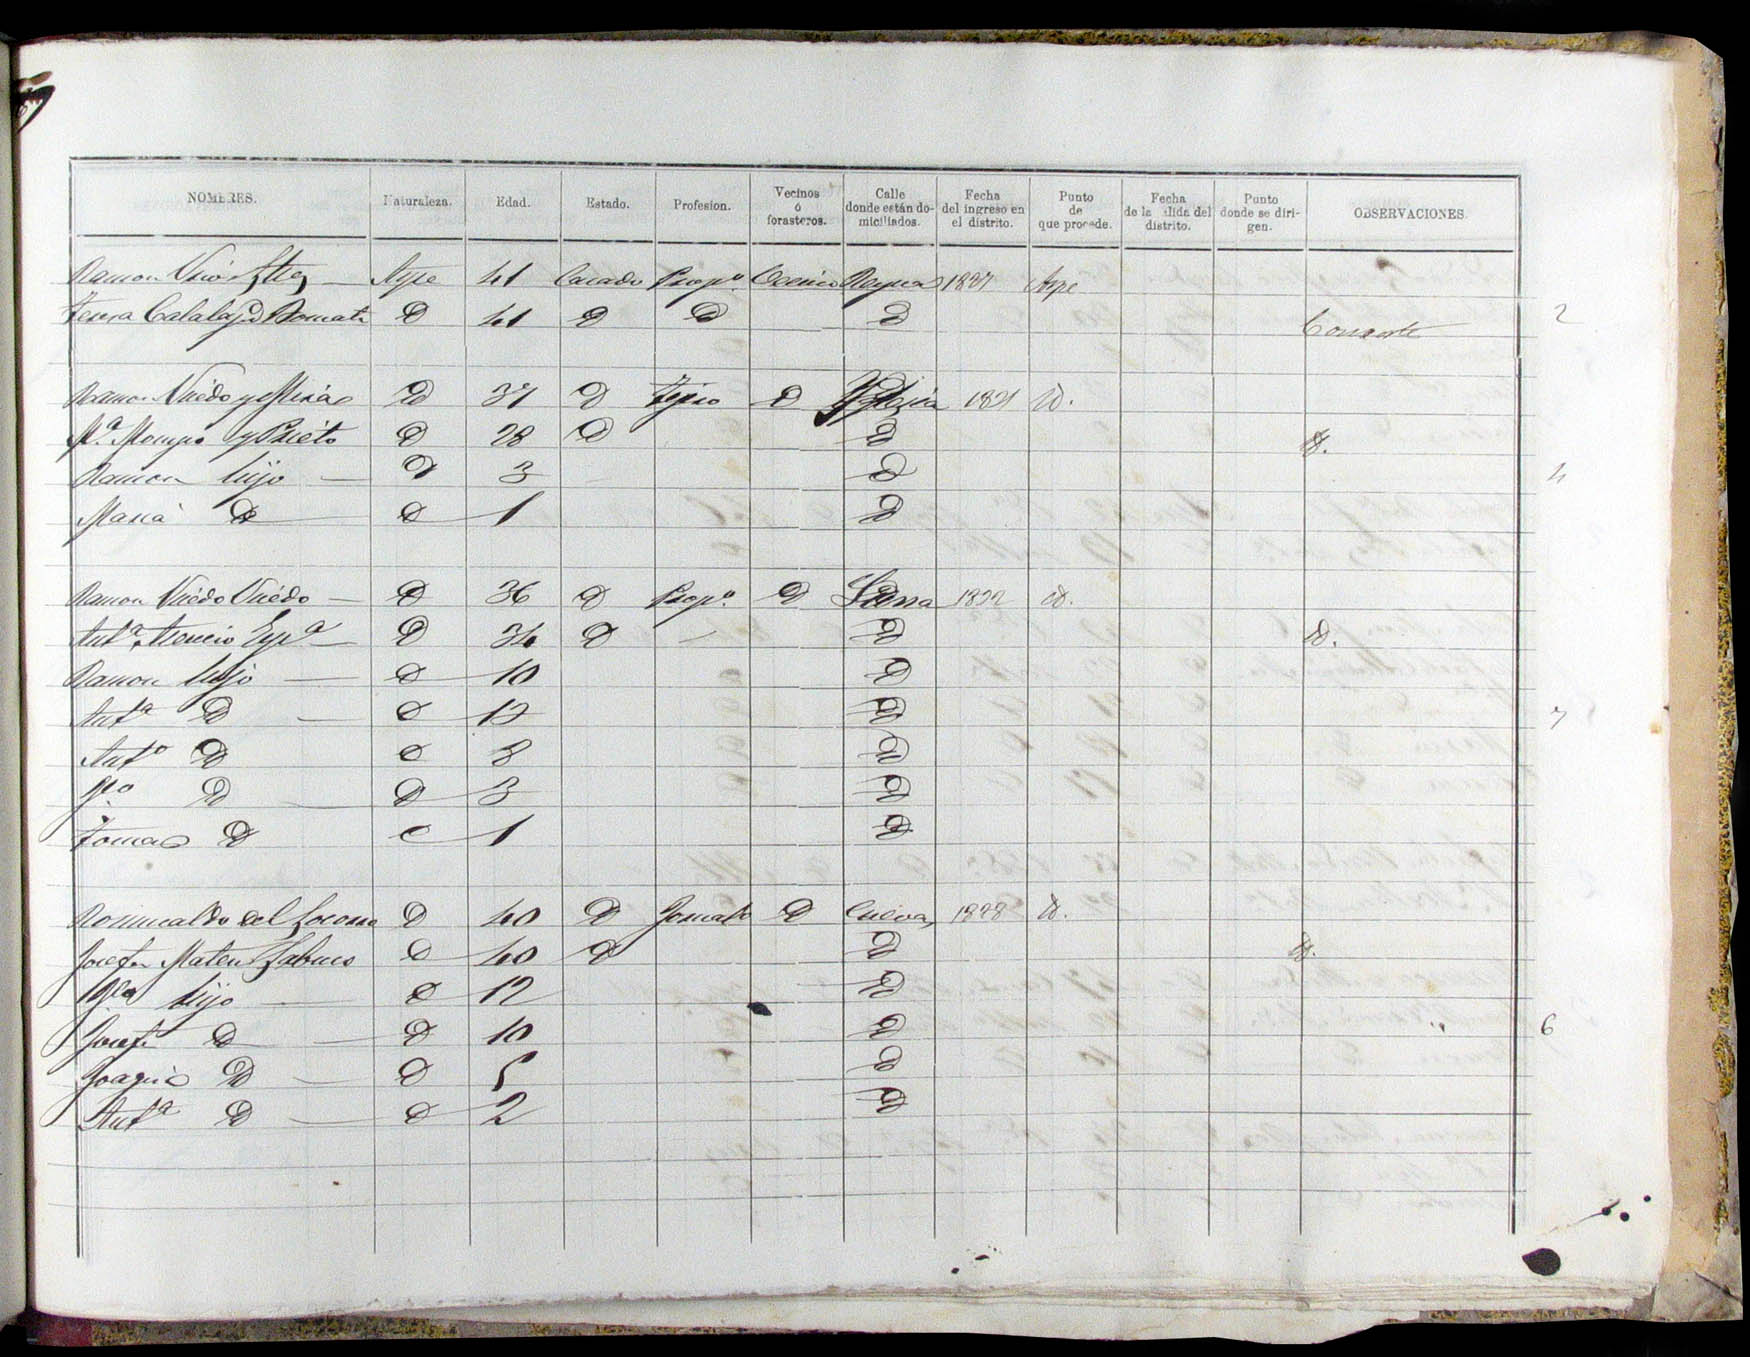 NOMBRES. Naturaleza. Edad. Estado. Profesion. Vecinos ó forasteros. Calle donde están domiciliados. Fecha del ingreso en el distrito. Punto de que procede. Fecha de la salida del distrito. Punto donde se dirigen. OBSERVACIONES.
Ramon Aspe 41 Casado Propº Vecino Reyna 1827 Aspe
Teresa Calatayud D 41 D D D Consorte 2
Ramon D 37 D D Yglesia 1831 D.
Mª y Prieto D 28 D D D.
Ramon hijo D 3 D 4
Maria D D 1 D
Ramon D 36 D Propº D 1832 D.
Antª D 34 D D D.
Ramon hijo D 10 D
Antª D D 12 D 7
Antº D D 8 D
D D 3 D
Tomas D D 1 D
Romualdo del Socorro D 40 D Jornalº D Cueva 1828 D.
Josefa Mateu D 40 D D D.
hijo D 12 D
Josefa D D 10 D 6
Joaquin D D 5 D
Antª D D 2 D